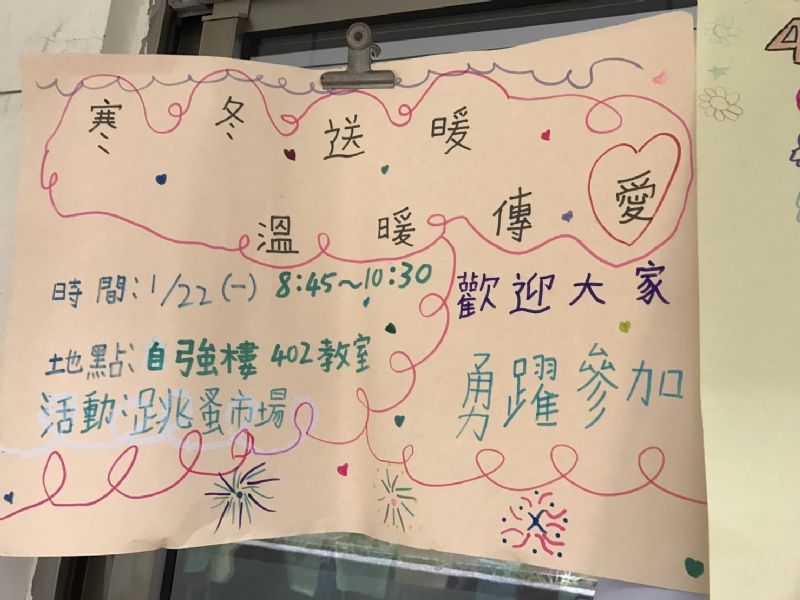 寒冬送暖
溫暖傳愛
時間:1/22(一) 8:45~10:30
地點:自強樓 402教室
活動:跳蚤市場
歡迎大家
勇躍參加